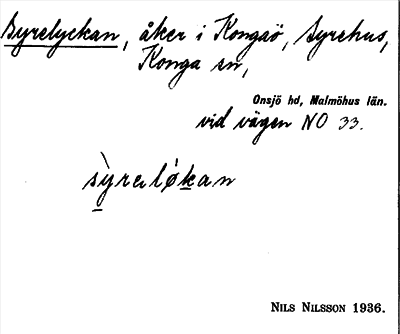 Syrelyckan, åker i Kongaö, Syrehus,
Konga sn,
Onsjö hd, Malmöhus län.
vid vägen NO 33.
sỳrəløkan
NILS NILSSON 1936.